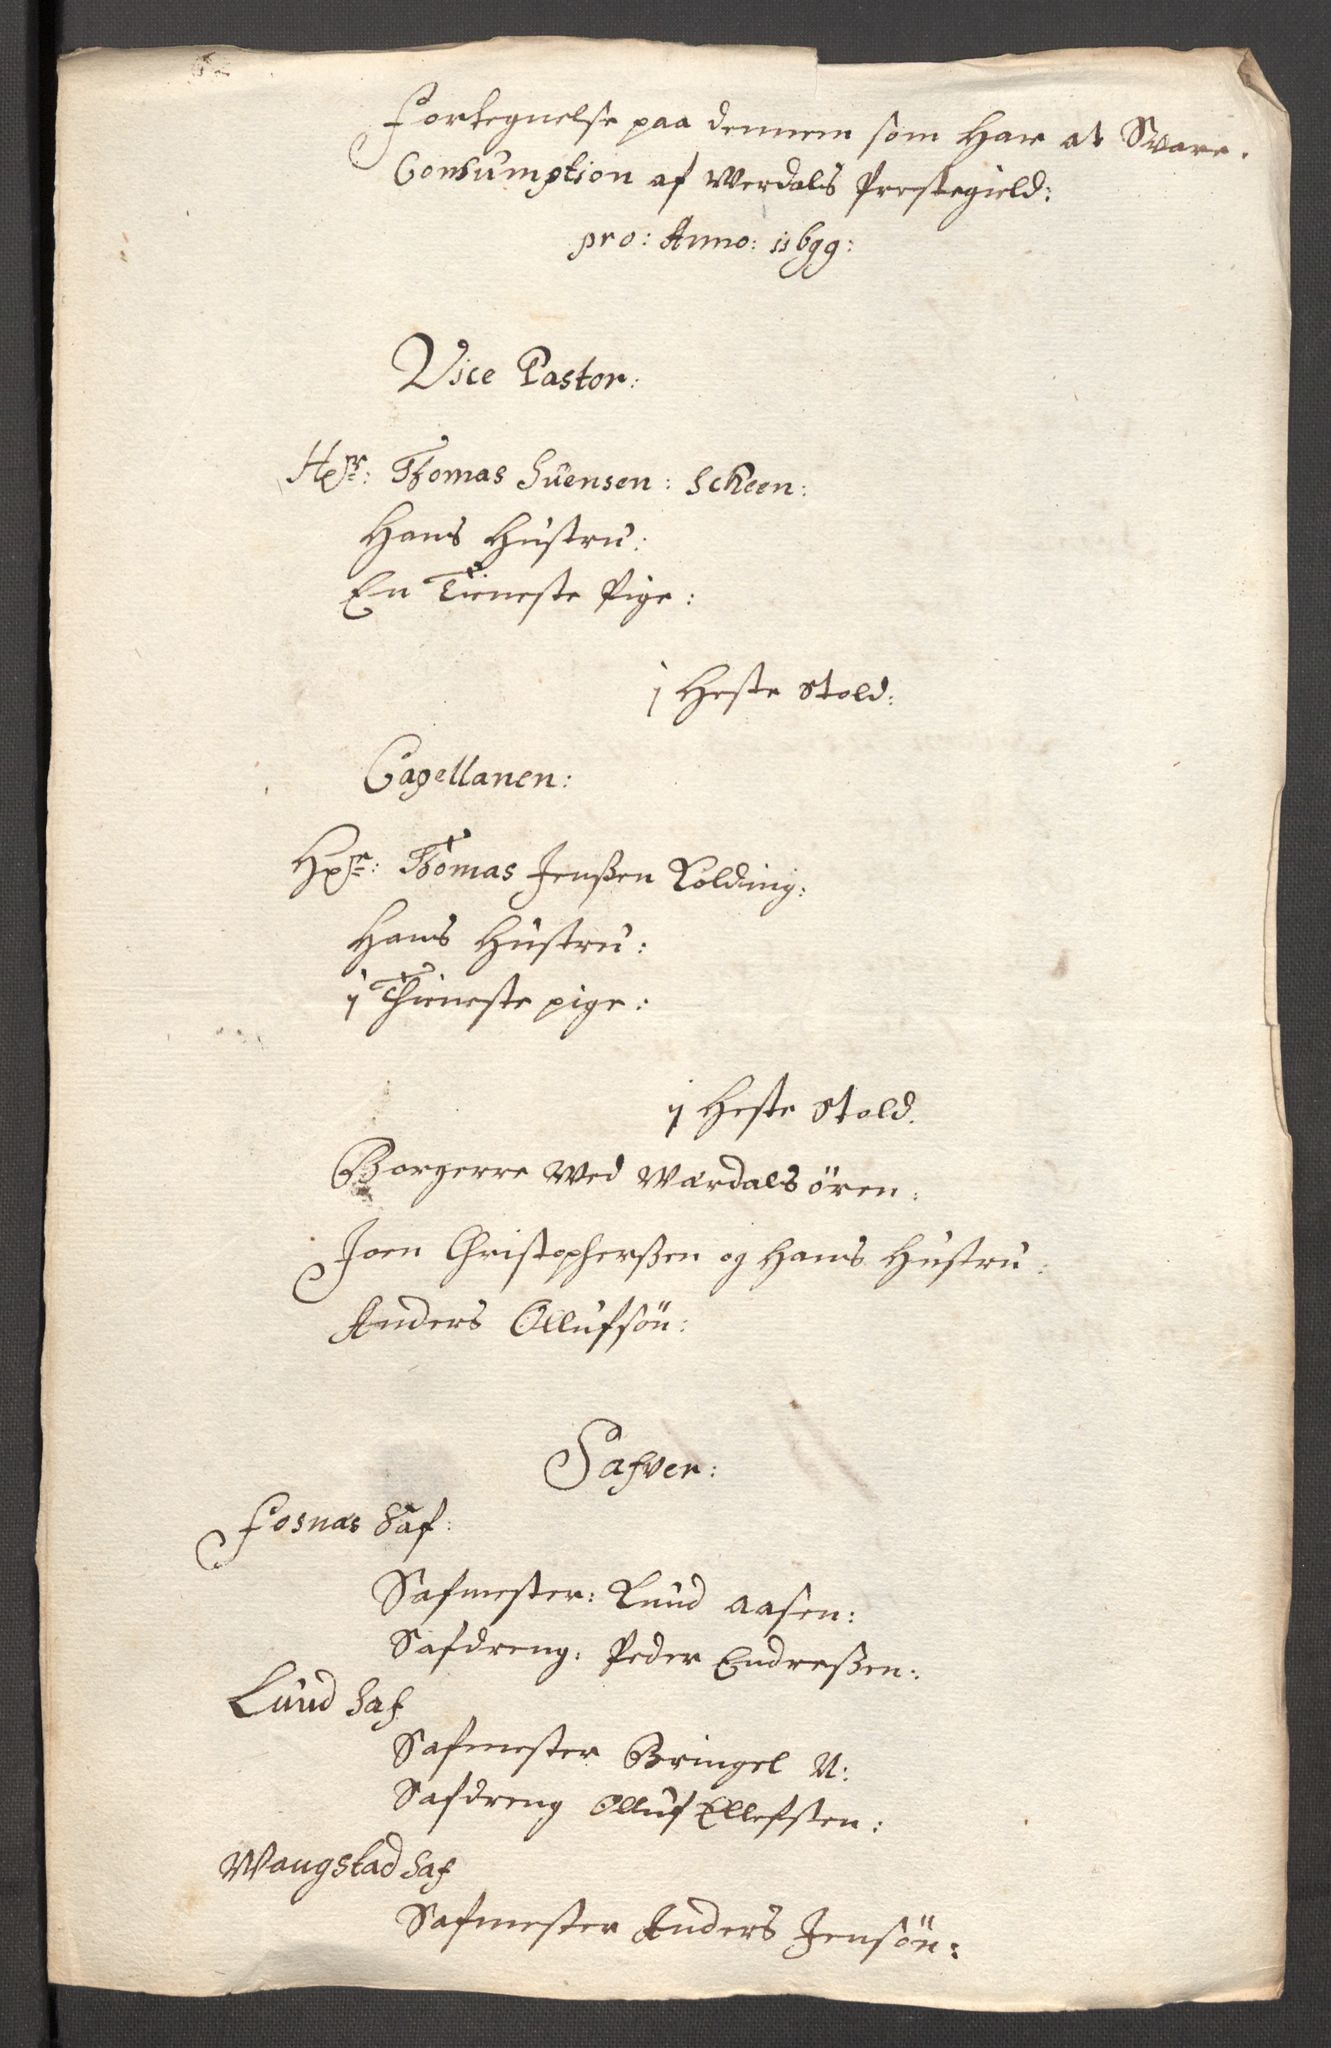 Fortegnelse paa dennem som Haar at Svare
Consumption af Werdals Prestegield:
pro: Anno: 1699:
Vice Pastor:
Hr: Thomas Suensen: Scheen:
Hans Hustru:
En Tieneste Pige:
1 Heste Hold:
Capellanen:
Hr: Thomas Jenßen Kolding:
Hans Hustru:
1 Thieneste pige:
1 Heste Hold.
Borgerre Wed Wærdalsören:
Joen Christopherßen og Hans Hustru:
Anders Ollufsön:
Safver:
Fosnæs Saf:
Safmester: Knud Aasen:
Safdreng: Peder Endreßen:
Lund Saf
Safmester Bringel N:
Safdreng Olluf Ellefsen:
Wangstad Saf
Safmester Anders Jensön: